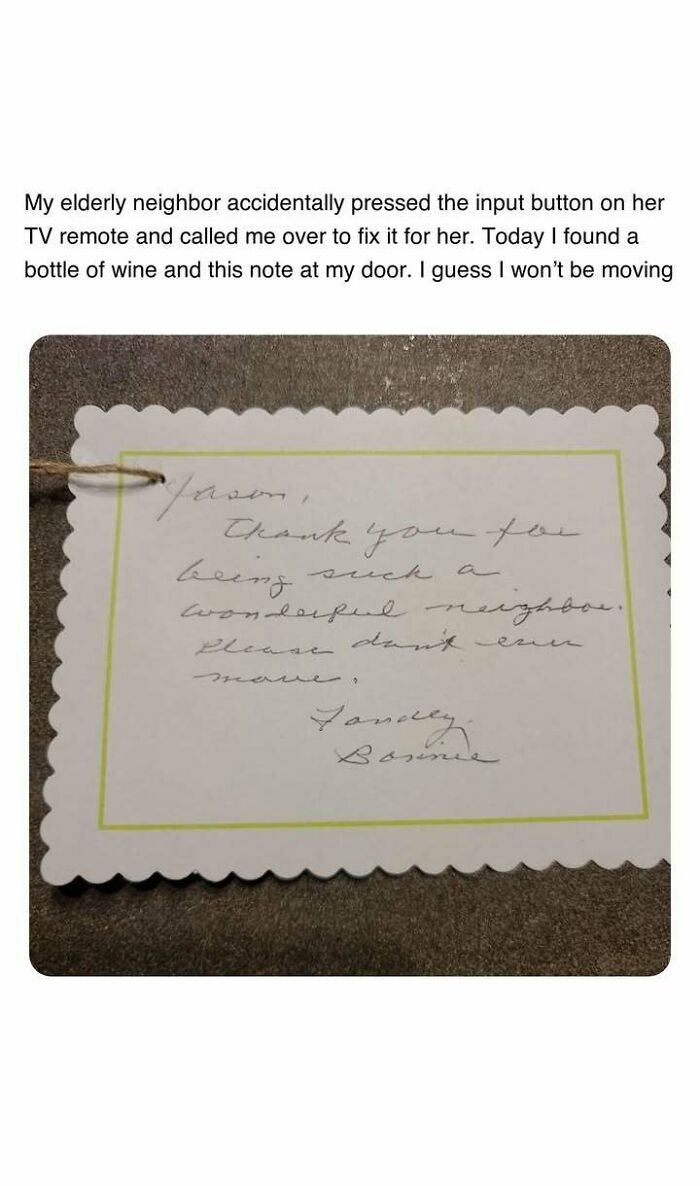 My elderly neighbor accidentally pressed the input button on her
TV remote and called me over to fix it for her. Today I found a
bottle of wine and this note at my door. I guess I won't be moving
Jason,
Thank you for
being such a
wonderful neighbor.
Please don't ever
move.
Fondly,
Bonnie